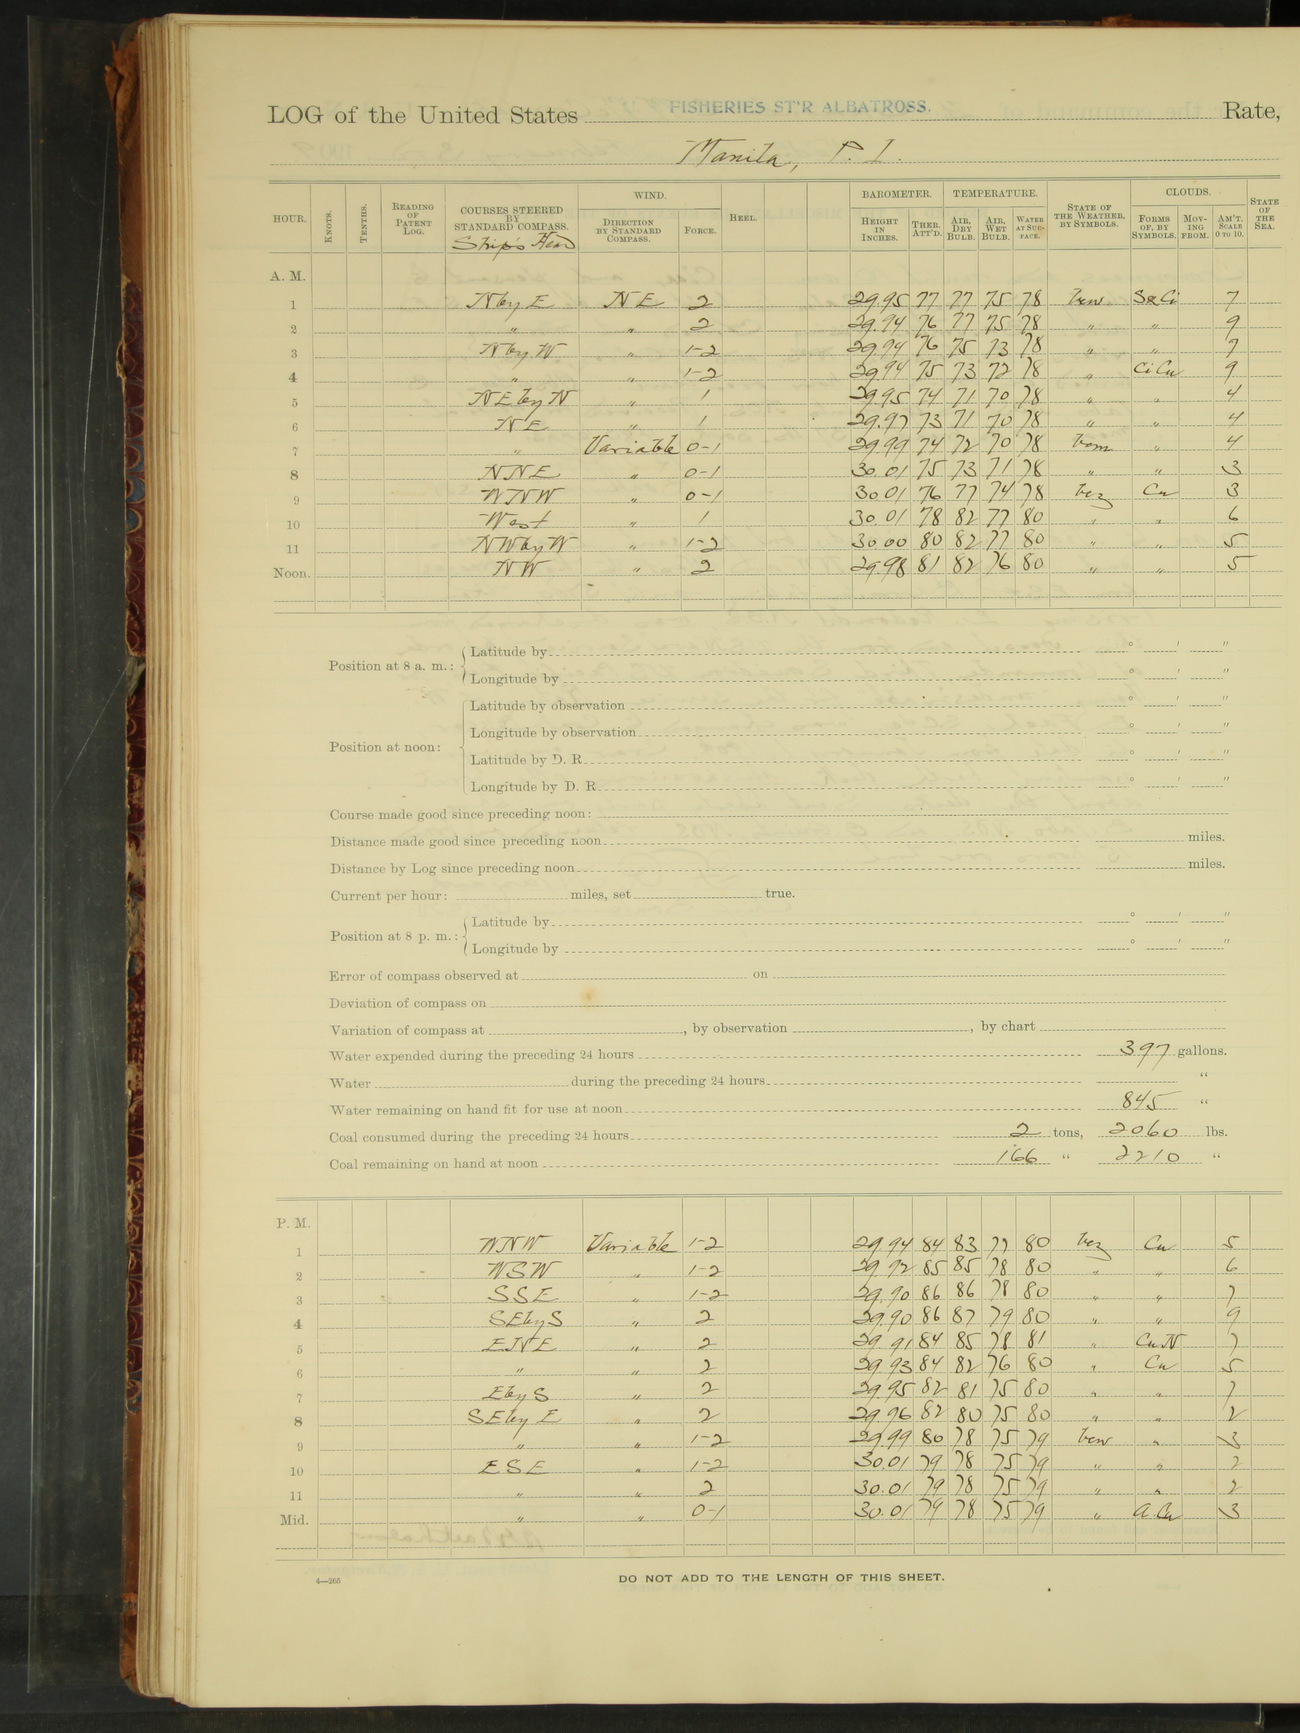 LOG of the United States FISHERIES ST'R ALBATROSS. Rate,
Manila, P. I.
HOUR. KNOTS. TENTHS. READING OF PATENT LOG. COURSES STEERED BY STANDARD COMPASS. Ship's Head WIND. DIRECTION BY STANDARD COMPASS. FORCE. HEEL. BAROMETER. HEIGHT IN INCHES. THER. ATT'D. TEMPERATURE. AIR, DRY BULB. AIR, WET BULB. WATER AT SURFACE. STATE OF THE WEATHER, BY SYMBOLS. CLOUDS. FORMS OF, BY SYMBOLS. MOVING FROM. AM'T. SCALE 0 TO 10. STATE OF THE SEA.
A. M.
1 N by E NE 2 29.95 77 77 75 78 bcw S&Ci 7
2 " " 2 29.94 76 77 75 78 " " 9
3 N by W " 1-2 29.94 76 75 73 78 " " 7
4 " " 1-2 29.94 75 73 72 78 " Ci Cu 9
5 NE by N " 1 29.95 74 71 70 78 " " 4
6 NE " 1 29.97 73 71 70 78 " " 4
7 " Variable 0-1 29.99 74 72 70 78 bcm " 4
8 NNE " 0-1 30.01 75 73 71 78 " " 3
9 WNW " 0-1 30.01 76 77 74 78 bcz Cu 3
10 West " 1 30.01 78 82 77 80 " " 6
11 NW by W " 1-2 30.00 80 82 77 80 " " 5
Noon. NW " 2 29.98 81 82 76 80 " " 5
Position at 8 a. m.: Latitude by ° ' "
Longitude by ° ' "
Position at noon: Latitude by observation ° ' "
Longitude by observation ° ' "
Latitude by D. R. ° ' "
Longitude by D. R. ° ' "
Course made good since preceding noon:
Distance made good since preceding noon miles.
Distance by Log since preceding noon miles.
Current per hour: miles, set true.
Position at 8 p. m.: Latitude by ° ' "
Longitude by ° ' "
Error of compass observed at on
Deviation of compass on
Variation of compass at , by observation , by chart
Water expended during the preceding 24 hours 397 gallons.
Water during the preceding 24 hours "
Water remaining on hand fit for use at noon 845 "
Coal consumed during the preceding 24 hours 2 tons, 2060 lbs.
Coal remaining on hand at noon 166 " 2210 "
P. M.
1 WNW Variable 1-2 29.94 84 83 77 80 bcz Cu 5
2 WSW " 1-2 29.92 85 85 78 80 " " 6
3 SSE " 1-2 29.90 86 86 78 80 " " 7
4 SE by S " 2 29.90 86 87 79 80 " " 9
5 ENE " 2 29.91 84 85 78 81 " Cu N 7
6 " " 2 29.93 84 82 76 80 " Cu 5
7 E by S " 2 29.95 82 81 75 80 " " 7
8 SE by E " 2 29.96 82 80 75 80 " " 2
9 " " 1-2 29.99 80 78 75 79 bcw " 3
10 ESE " 1-2 30.01 79 78 75 79 " " 2
11 " " 2 30.01 79 78 75 79 " " 2
Mid. " " 0-1 30.01 79 78 75 79 " A. Cu 3
4—265
DO NOT ADD TO THE LENGTH OF THIS SHEET.